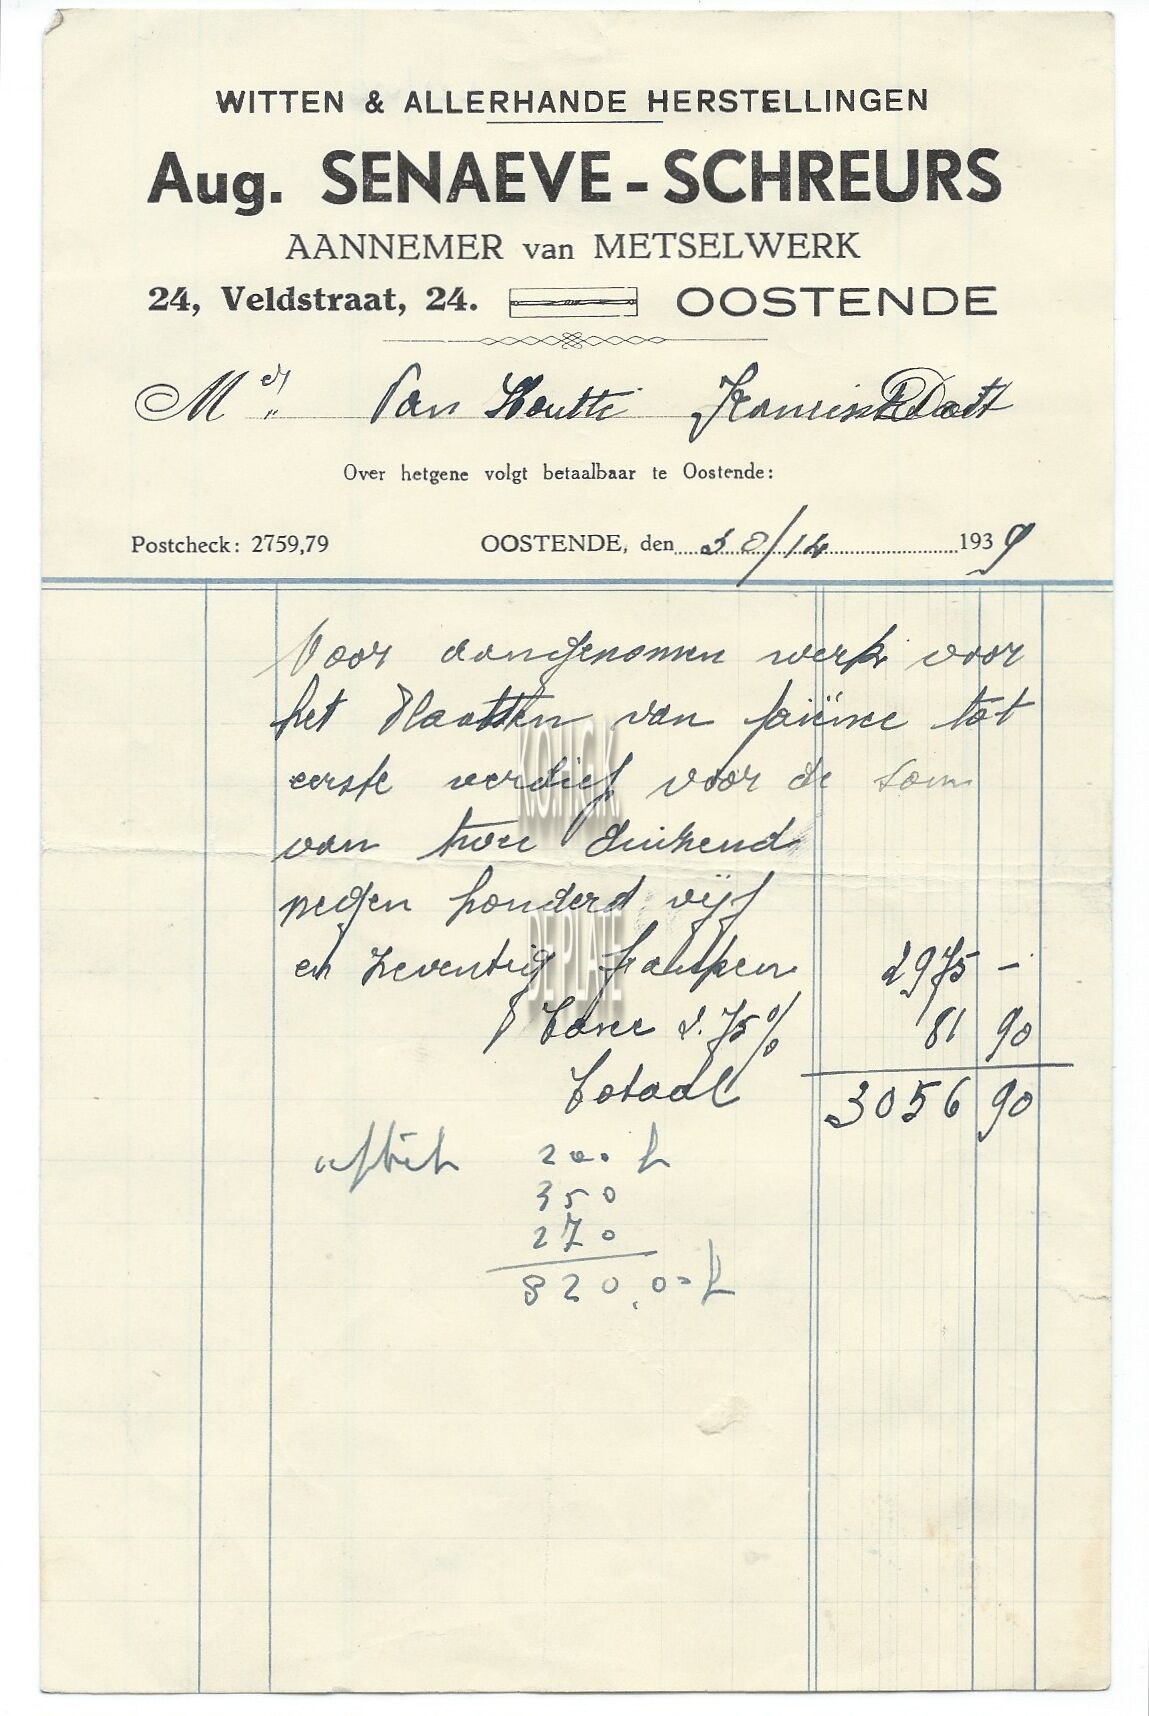 WITTEN & ALLERHANDE HERSTELLINGEN
Aug. SENAEVE - SCHREURS
AANNEMER van METSELWERK
24, Veldstraat, 24. OOSTENDE
M Van Houtte
Over hetgene volgt betaalbaar te Oostende:
Postcheck: 2759,79 OOSTENDE, den 30/12 1939
Voor aangenomen werk voor
het Plaatsen van faïence tot
eerste verdief voor de som
van twee duizend
negen honderd vijf
en zeventig franken 2975 -
Taxe 2.75% 81 90
Totaal 3056 90
200 f
350
270
820,00 f
KON.GK.
DE PLATE